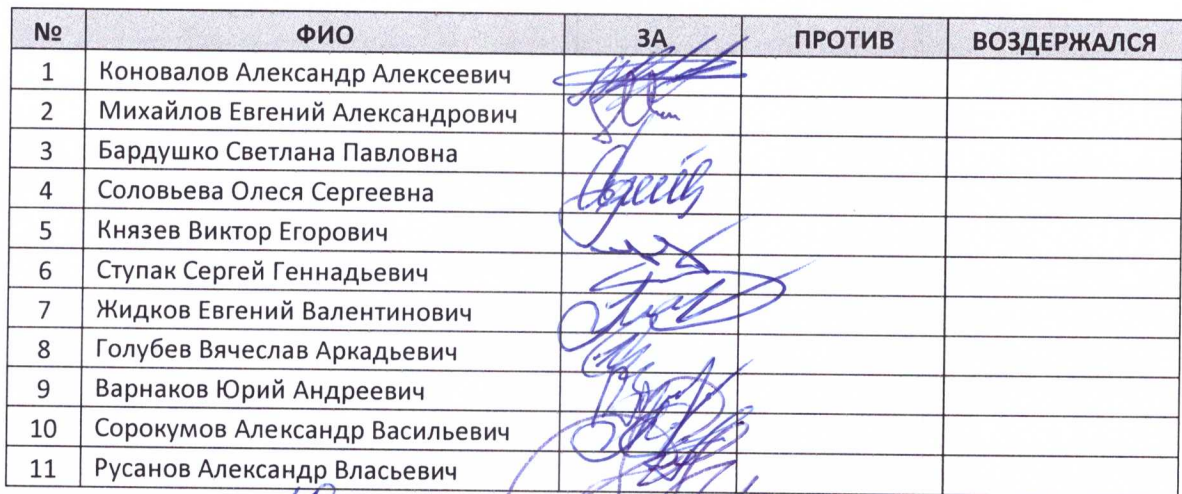 № ФИО ЗА ПРОТИВ ВОЗДЕРЖАЛСЯ
1 Коновалов Александр Алексеевич
2 Михайлов Евгений Александрович
3 Бардушко Светлана Павловна
4 Соловьева Олеся Сергеевна
5 Князев Виктор Егорович
6 Ступак Сергей Геннадьевич
7 Жидков Евгений Валентинович
8 Голубев Вячеслав Аркадьевич
9 Варнаков Юрий Андреевич
10 Сорокумов Александр Васильевич
11 Русанов Александр Власьевич